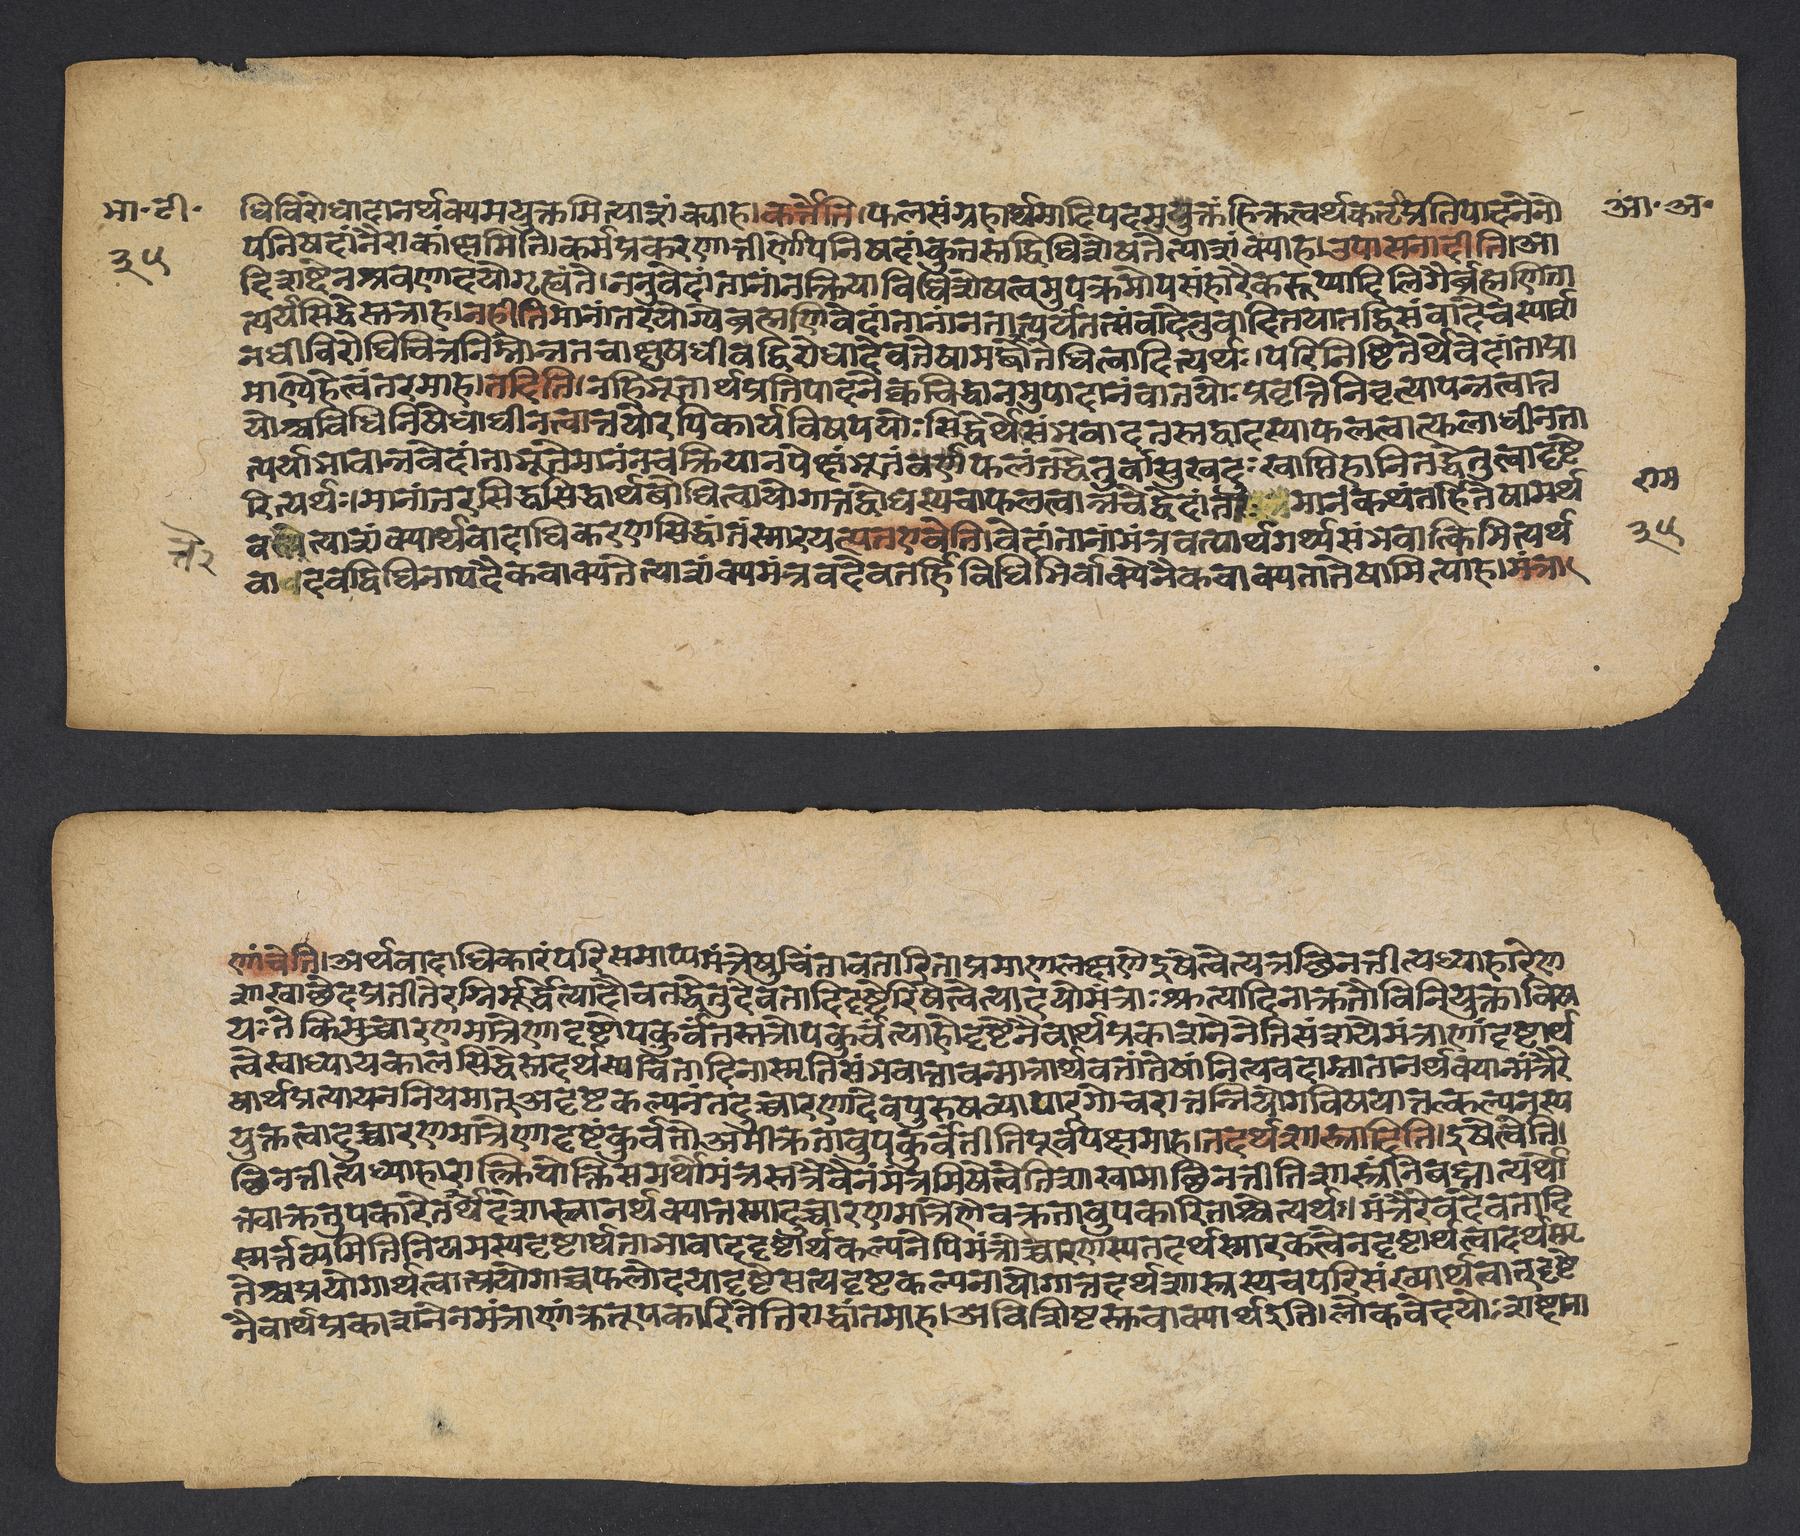 भा॰टी॰
३५
आ॰अ॰
धिविरोधादानर्थक्यमयुक्तमित्याशंक्याह।कर्त्रेति।फलसंग्रहार्थमादिपदमुपयुक्तंहिक्रत्वर्थकर्तृप्रतिपादनेनो
पनिषदांनैराकांक्षमिति।कर्मप्रकरणोत्तीर्णोपनिषदांकुतस्तद्विधिशेषतेत्याशंक्याह।उपासनादीति।आ
दिशब्देनश्रवणादयोगृह्यंते।ननुवेदांतानांनक्रियाविधिशेषत्वमुपक्रमोपसंहारैकरूप्यादिलिंगैर्ब्रह्मणिता
त्पर्यसिद्धेस्तत्राह।नहीतिमानांतरयोग्यब्रह्मणिवेदांतानांनतात्पर्यंतत्संवादेनुवादितयातद्विसंवादेचस्पार्श
नधीविरोधिचित्रनिम्नोन्नतचाक्षुषधीवद्विरोधादेवतेषामद्बोधित्वादित्यर्थः।परिनिष्ठितेर्थेवेदांताप्रा
माण्येहेत्वंतरमाह।तदिति।नहिभूतार्थप्रतिपादनेक्वचिद्धानमुपादानंवातयोःप्रवृत्तिनिवृत्यापन्नत्वात्त
योश्चविधिनिषेधाधीनत्वात्तयोरपिकार्यविषययोःसिद्धेर्थेसंभवादतस्तद्वादस्याफलत्वात्फलाधीनता
त्पर्याभावान्नवेदांताभूतेमानंनचक्रियानपेक्षंभूतंवस्त्वेफलंतद्धेतुर्वासुखदुःखाप्तिहानितद्धेतुत्वादृष्टे
रित्यर्थः।मानांतरसिद्धसिद्धार्थबोधित्वायोगात्तद्बोधस्यचाफलत्वान्नचेद्वेदांताः मानंकथंतर्हितेषामर्थ
वत्तेत्याशंक्यार्थवादाधिकरणसिद्धांतंस्मारयत्यतएवेति।वेदांतानांमंत्रवत्पार्थगर्थ्यसंभवात्किमित्यर्थ
वादवद्विधिनापदैकवाक्यतेत्याशंक्यमंत्रवदेवतर्हिविधिभिर्वाक्येनैकवाक्यतातेषामित्याह।मंत्रा
राम
३५
णांचेति।अर्थवादाधिकारंपरिसमाप्यमंत्रेषुचिंतावतारिताप्रमाणलक्षणेइषेत्वेत्यत्रछिनत्तीत्यध्याहारेण
शाखाछेदप्रतीतेरग्निर्मूर्द्धेत्यादौचतद्धेतुदेवतादिदृष्टेरिषेत्वेत्यादयोमंत्राःश्रुत्यादिनाक्रतौविनियुक्ताविष
यःतेकिमुच्चारणमात्रेणादृष्टोपकुर्वंतस्तत्रोपकुर्वंत्याहोदृष्टेनैवार्थप्रकाशनेनेतिसंशयेमंत्राणांदृष्टार्थ
त्वेस्वाध्यायकालसिद्धेस्तदर्थस्यचिंतादिनास्मृतिसंभवात्तावन्मात्रार्थवतांतेषांनित्यवदाम्नातानर्थक्यान्मंत्रैरे
वार्थप्रत्यायननियमात्तुअदृष्टकल्पनंतदुच्चारणादेवपुरुषव्यापारगोचरात्तन्नियोगविषयात्तत्कल्पनस्य
युक्तत्वादुच्चारणमात्रेणादृष्टंकुर्वंतोअमीक्रतावुपकुर्वंतीतिपूर्वपक्षमाह।तदर्थशास्त्रादिति।इषेत्वेति।
छिनत्तीत्यध्याहारात्क्रियोक्तिसमर्थोमंत्रस्तत्रैवैनंमंत्रमिषेत्वेतिशाखामाछिनत्तीतिशास्त्रंनिबध्नात्यर्था
न्नवाक्रतुपकारेतदर्थेदंशास्त्रानर्थक्यात्तस्मादुच्चारणमात्रेणैवक्रतावुपकारिताश्चेत्यर्थः।मंत्रैरेवदेवतादि
स्मर्त्तव्यमितिनियमस्यदृष्टार्थताभावाददृष्टार्थकल्पनेपिमंत्रोच्चारणस्यतदर्थस्मारकत्वेनदृष्टार्थत्वादर्थस्मृ
तेश्चप्रयोगार्थत्वात्प्रयोगाच्चफलोदयाद्दृष्टेसत्यदृष्टकल्पनायोगात्तदर्थशास्त्रस्यचपरिसंख्यार्थत्वात्तुदृष्टे
नैवार्थप्रकाशनेनमंत्राणांक्रतूपकारितेतिराद्धांतमाह।अविशिष्टस्तुवाक्यार्थइति।लोकवेदयोःशब्दाना